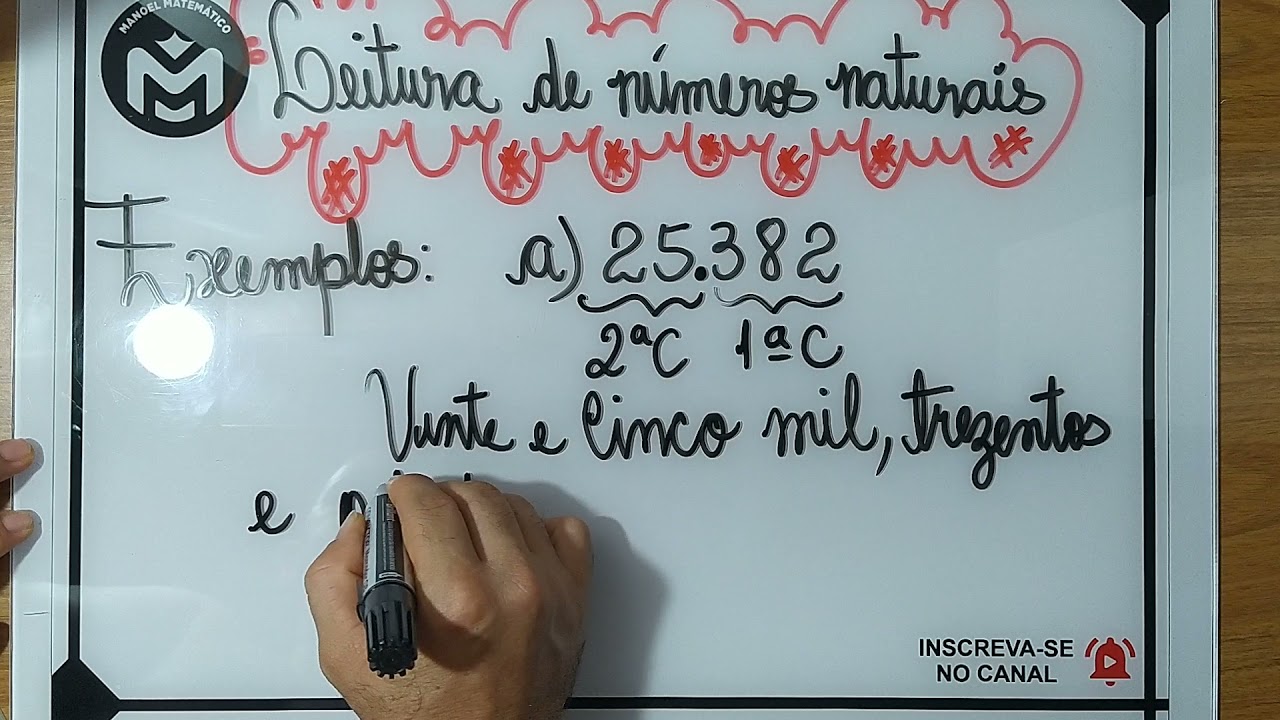 MANOEL MATEMÁTICO
Leitura de números naturais
Exemplos: a) 25.382
2ªC 1ªC
Vinte e Cinco mil, trezentos
e
INSCREVA-SE
NO CANAL